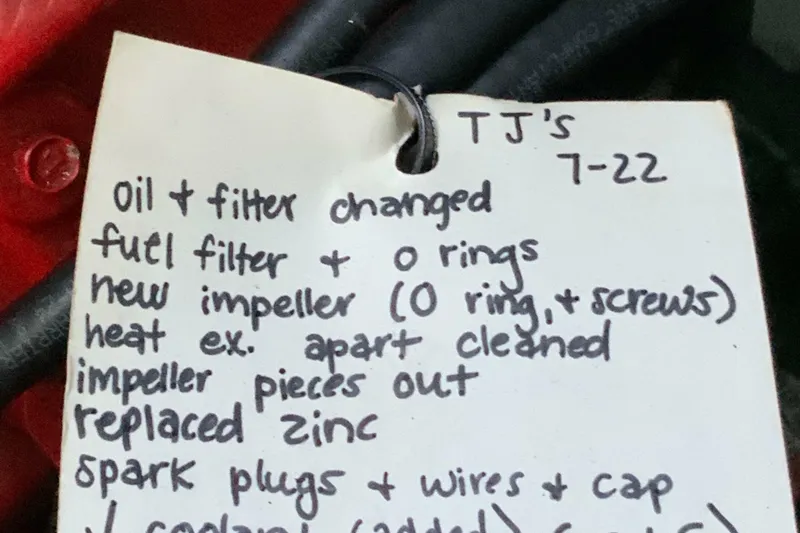 TJ's
7-22
oil + filter changed
fuel filter + o rings
new impeller (O ring, + screws)
heat ex. apart cleaned
impeller pieces out
replaced zinc
spark plugs + wires + cap
√ coolant (added)